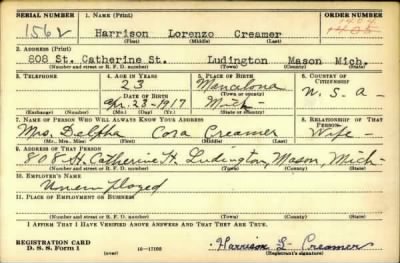 SERIAL NUMBER 1. NAME (Print) ORDER NUMBER
1404
1562 Harrison Lorenzo Creamer 1405
(First) (Middle) (Last)
2. ADDRESS (Print)
808 St. Catherine St. Ludington Mason Mich.
(Number and street or R. F. D. number) (Town) (County) (State)
3. TELEPHONE 4. AGE IN YEARS 5. PLACE OF BIRTH 6. COUNTRY OF CITIZENSHIP
23 Mancelona
DATE OF BIRTH (Town or county)
Apr. 23-1917 Mich- U. S. A-
(Exchange) (Number) (Mo.) (Day) (Yr.) (State or country)
7. NAME OF PERSON WHO WILL ALWAYS KNOW YOUR ADDRESS 8. RELATIONSHIP OF THAT PERSON
Mrs. Delpha Cora Creamer Wife-
(Mr., Mrs., Miss) (First) (Middle) (Last)
9. ADDRESS OF THAT PERSON
808 St. Catherine St. Ludington, Mason, Mich-
(Number and street or R. F. D. number) (Town) (County) (State)
10. EMPLOYER'S NAME
Unemployed
11. PLACE OF EMPLOYMENT OR BUSINESS
(Number and street or R. F. D. number) (Town) (County) (State)
I AFFIRM THAT I HAVE VERIFIED ABOVE ANSWERS AND THAT THEY ARE TRUE.
REGISTRATION CARD
D. S. S. Form 1 (over) Harrison L Creamer
(Registrant's signature)